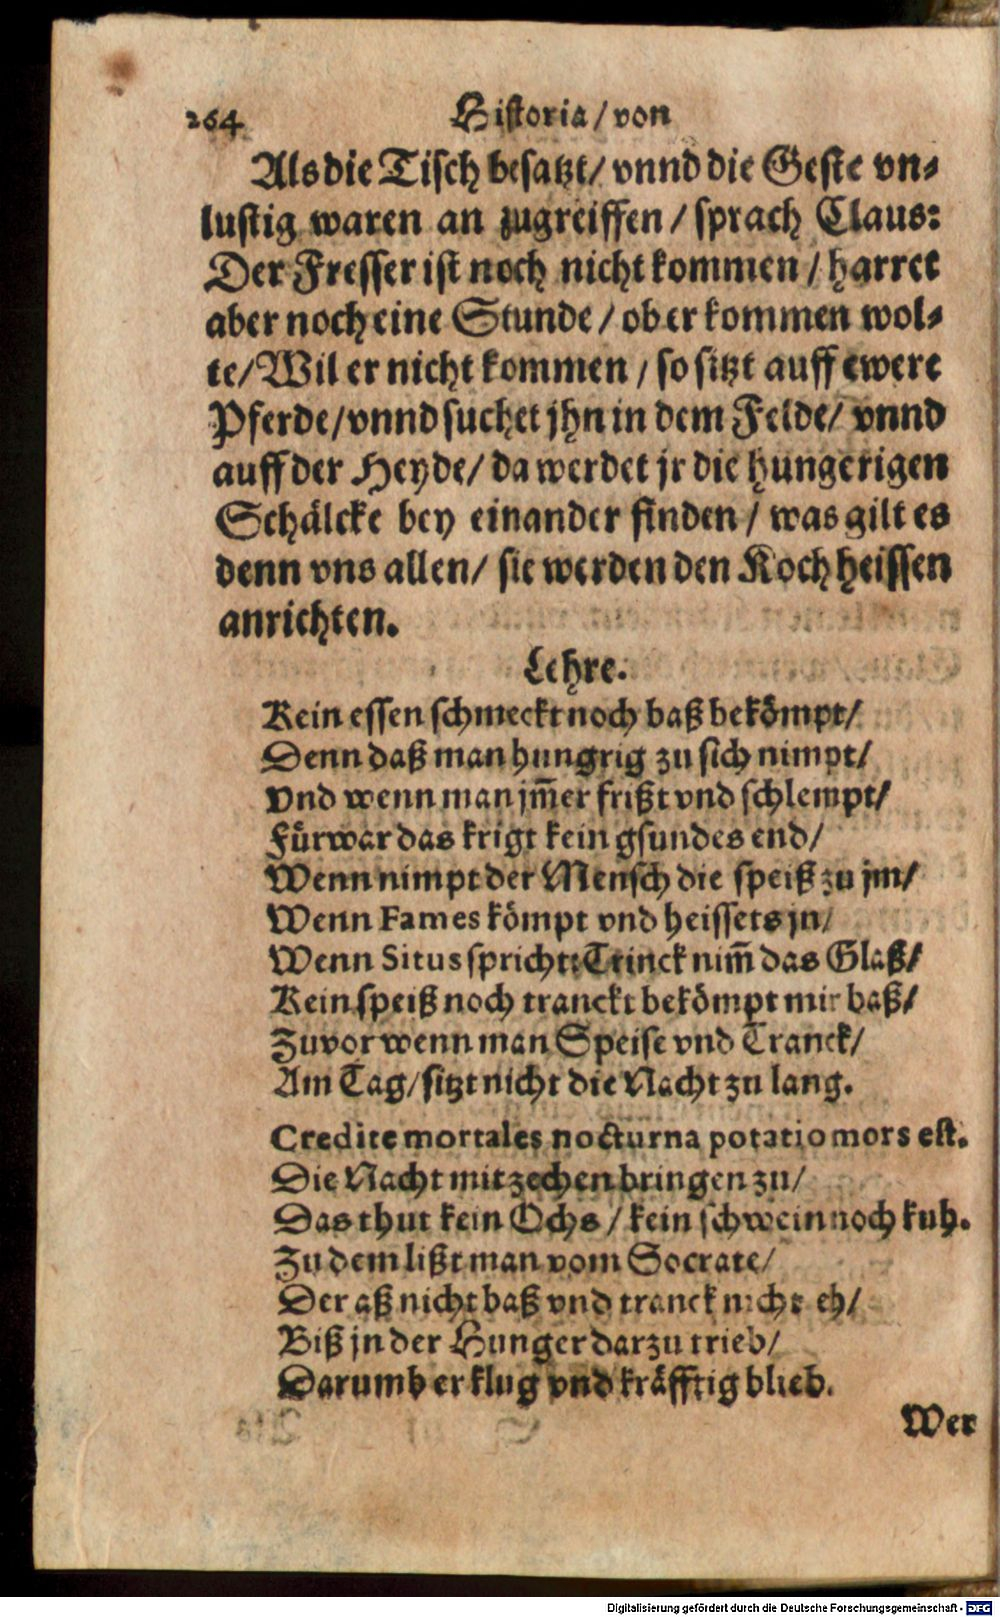 264 Historia / von
Als die Tisch besatzt / vnnd die Geste vn⸗
lustig waren an zugreiffen / sprach Claus:
Der Fresser ist noch nicht kommen / harret
aber noch eine Stunde / ob er kommen wol⸗
te / Wil er nicht kommen / so sitzt auff ewere
Pferde / vnnd suchet jhn in dem Felde / vnnd
auff der Heyde / da werdet jr die hungerigen
Schälcke bey einander finden / was gilt es
denn vns allen / sie werden den Koch heissen
anrichten.
Lehre.
Kein essen schmeckt noch baß bekömpt /
Denn daß man hungrig zu sich nimpt /
Vnd wenn man jm̃er frißt vnd schlempt /
Fürwar das krigt kein gsundes end /
Wenn nimpt der Mensch die speiß zu jm /
Wenn Fames kömpt vnd heissets jn /
Wenn Situs spricht: Trinck nim̃ das Glaß /
Kein speiß noch tranckt bekömpt mir baß /
Zuvor wenn man Speise vnd Tranck /
Am Tag / sitzt nicht die Nacht zu lang.
Credite mortales nocturna potatio mors est.
Die Nacht mit zechen bringen zu /
Das thut kein Ochs / kein schwein noch kuh.
Zu dem lißt man vom Socrate /
Der aß nicht baß vnd tranck nicht eh /
Biß jn der Hunger darzu trieb /
Darumb er klug vnd kräfftig blieb.
Wer
Digitalisierung gefördert durch die Deutsche Forschungsgemeinschaft - DFG